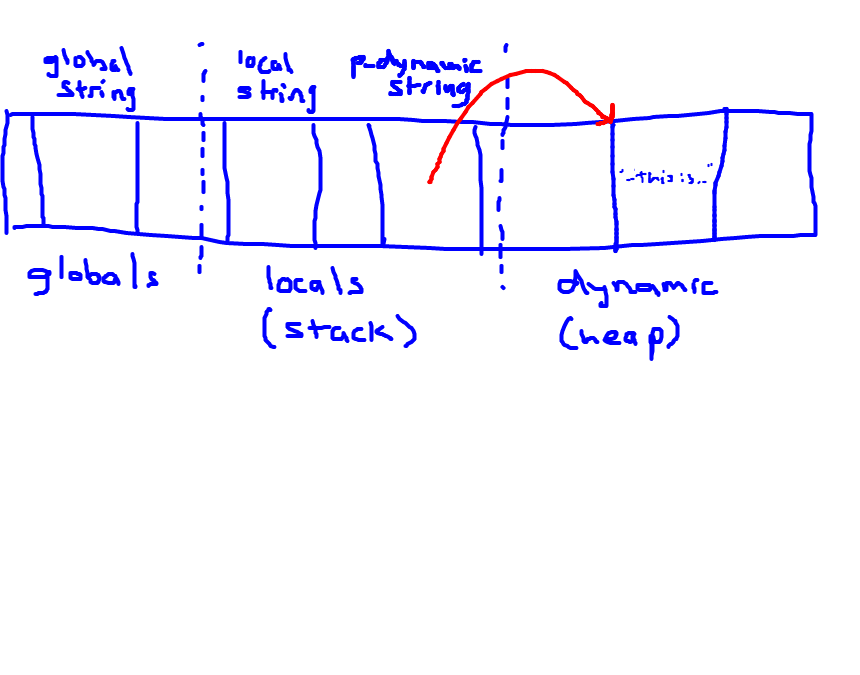 global
string
local
string
p-dynamic
string
"-this is.."
globals
locals
(stack)
dynamic
(heap)